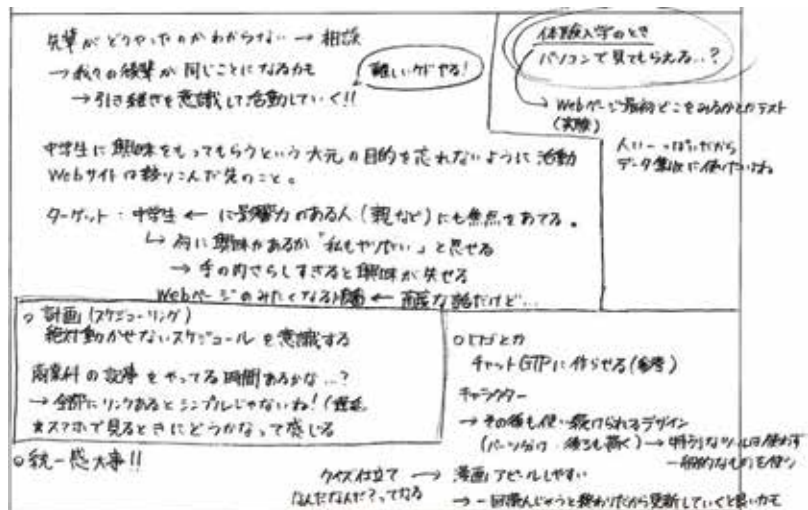 先輩がどうやったのかわからない → 相談
→ 我々の後輩が同じことになるかも
難しいケドやる!
→ 引き継ぎを意識して活動していく!!
体験入学のとき
パソコンで見てもらえる…?
→ Webページ最初どこをみるかとかテスト
(実験)
人いーっぱいだから
データ集収に使いたいよね
中学生に興味をもってもらうという大元の目的を忘れないように活動
Webサイトは移りこんだ先のこと。
ターゲット:中学生 ← に影響力のある人(親など)にも焦点をあてる。
↳ 何に興味があるか「私もやりたい」と思せる
→ 手の内さらしすぎると興味が失せる
Webページのみたくなる ← 高度な話だけど…
○ 計画(スケジューリング)
絶対動かせないスケジュールを意識する
商業科の記事をやってる時間あるかな…?
→ 全部にリンクあるとシンプルじゃないね!
★スマホで見るときにどうかなって感じる
○統一感大事!!
○ロゴとか
チャットGTPに作らせる(参考)
キャラクター
→ その後も使い続けられるデザイン
(パーツ分け・後ろも描く) → 特別なツールは使わず
一般的なものを使う
クイズ仕立て → 漫画アピールしやすい
なんだなんだ?ってなる
→ 一回読んじゃうと終わりだから更新していくと良いかも